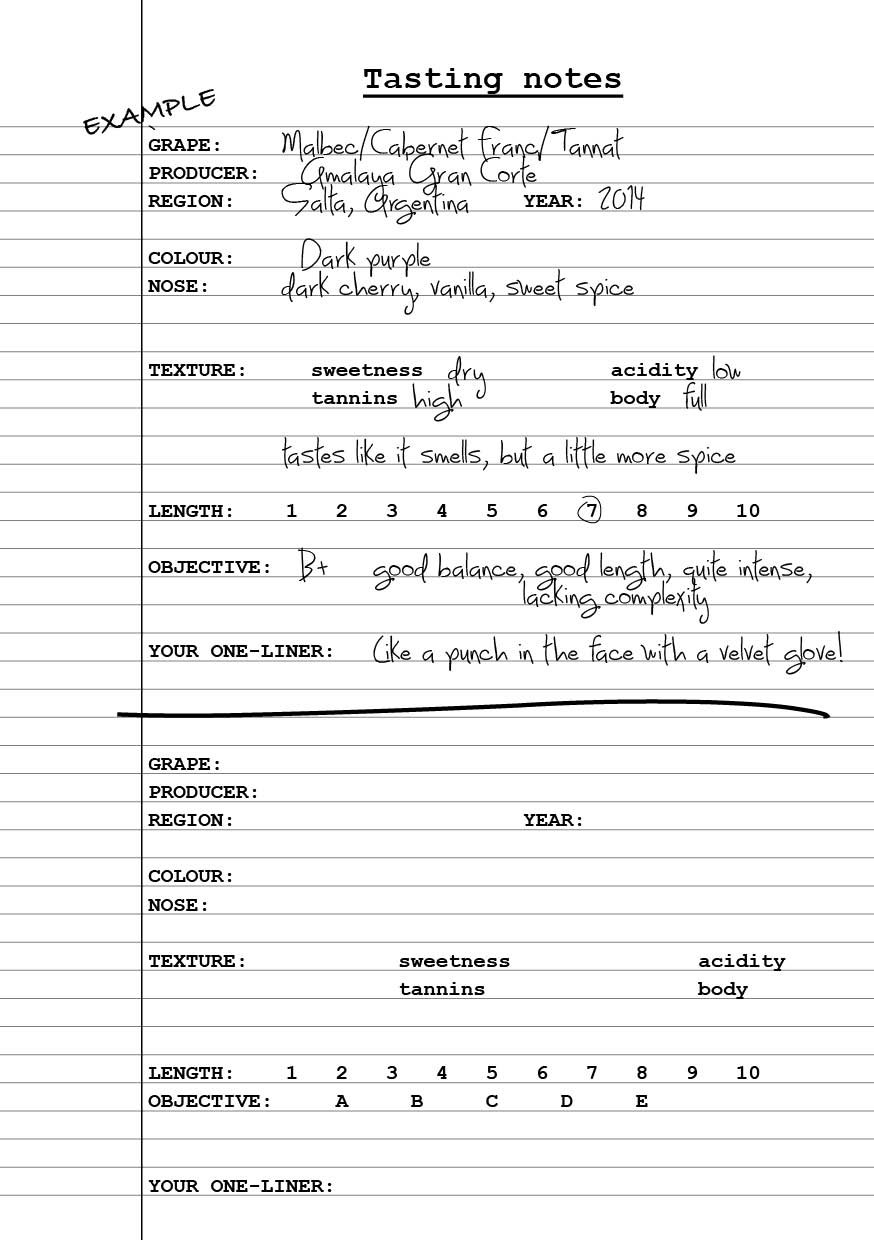 Tasting notes
EXAMPLE
GRAPE: Malbec/Cabernet Franc/Tannat
PRODUCER: Amalaya Gran Corte
REGION: Salta, Argentina YEAR: 2014
COLOUR: Dark purple
NOSE: dark cherry, vanilla, sweet spice
TEXTURE: sweetness dry acidity low
tannins high body full
tastes like it smells, but a little more spice
LENGTH: 1 2 3 4 5 6 7 8 9 10
OBJECTIVE: B+ good balance, good length, quite intense,
lacking complexity
YOUR ONE-LINER: Like a punch in the face with a velvet glove!
GRAPE:
PRODUCER:
REGION: YEAR:
COLOUR:
NOSE:
TEXTURE: sweetness acidity
tannins body
LENGTH: 1 2 3 4 5 6 7 8 9 10
OBJECTIVE: A B C D E
YOUR ONE-LINER: